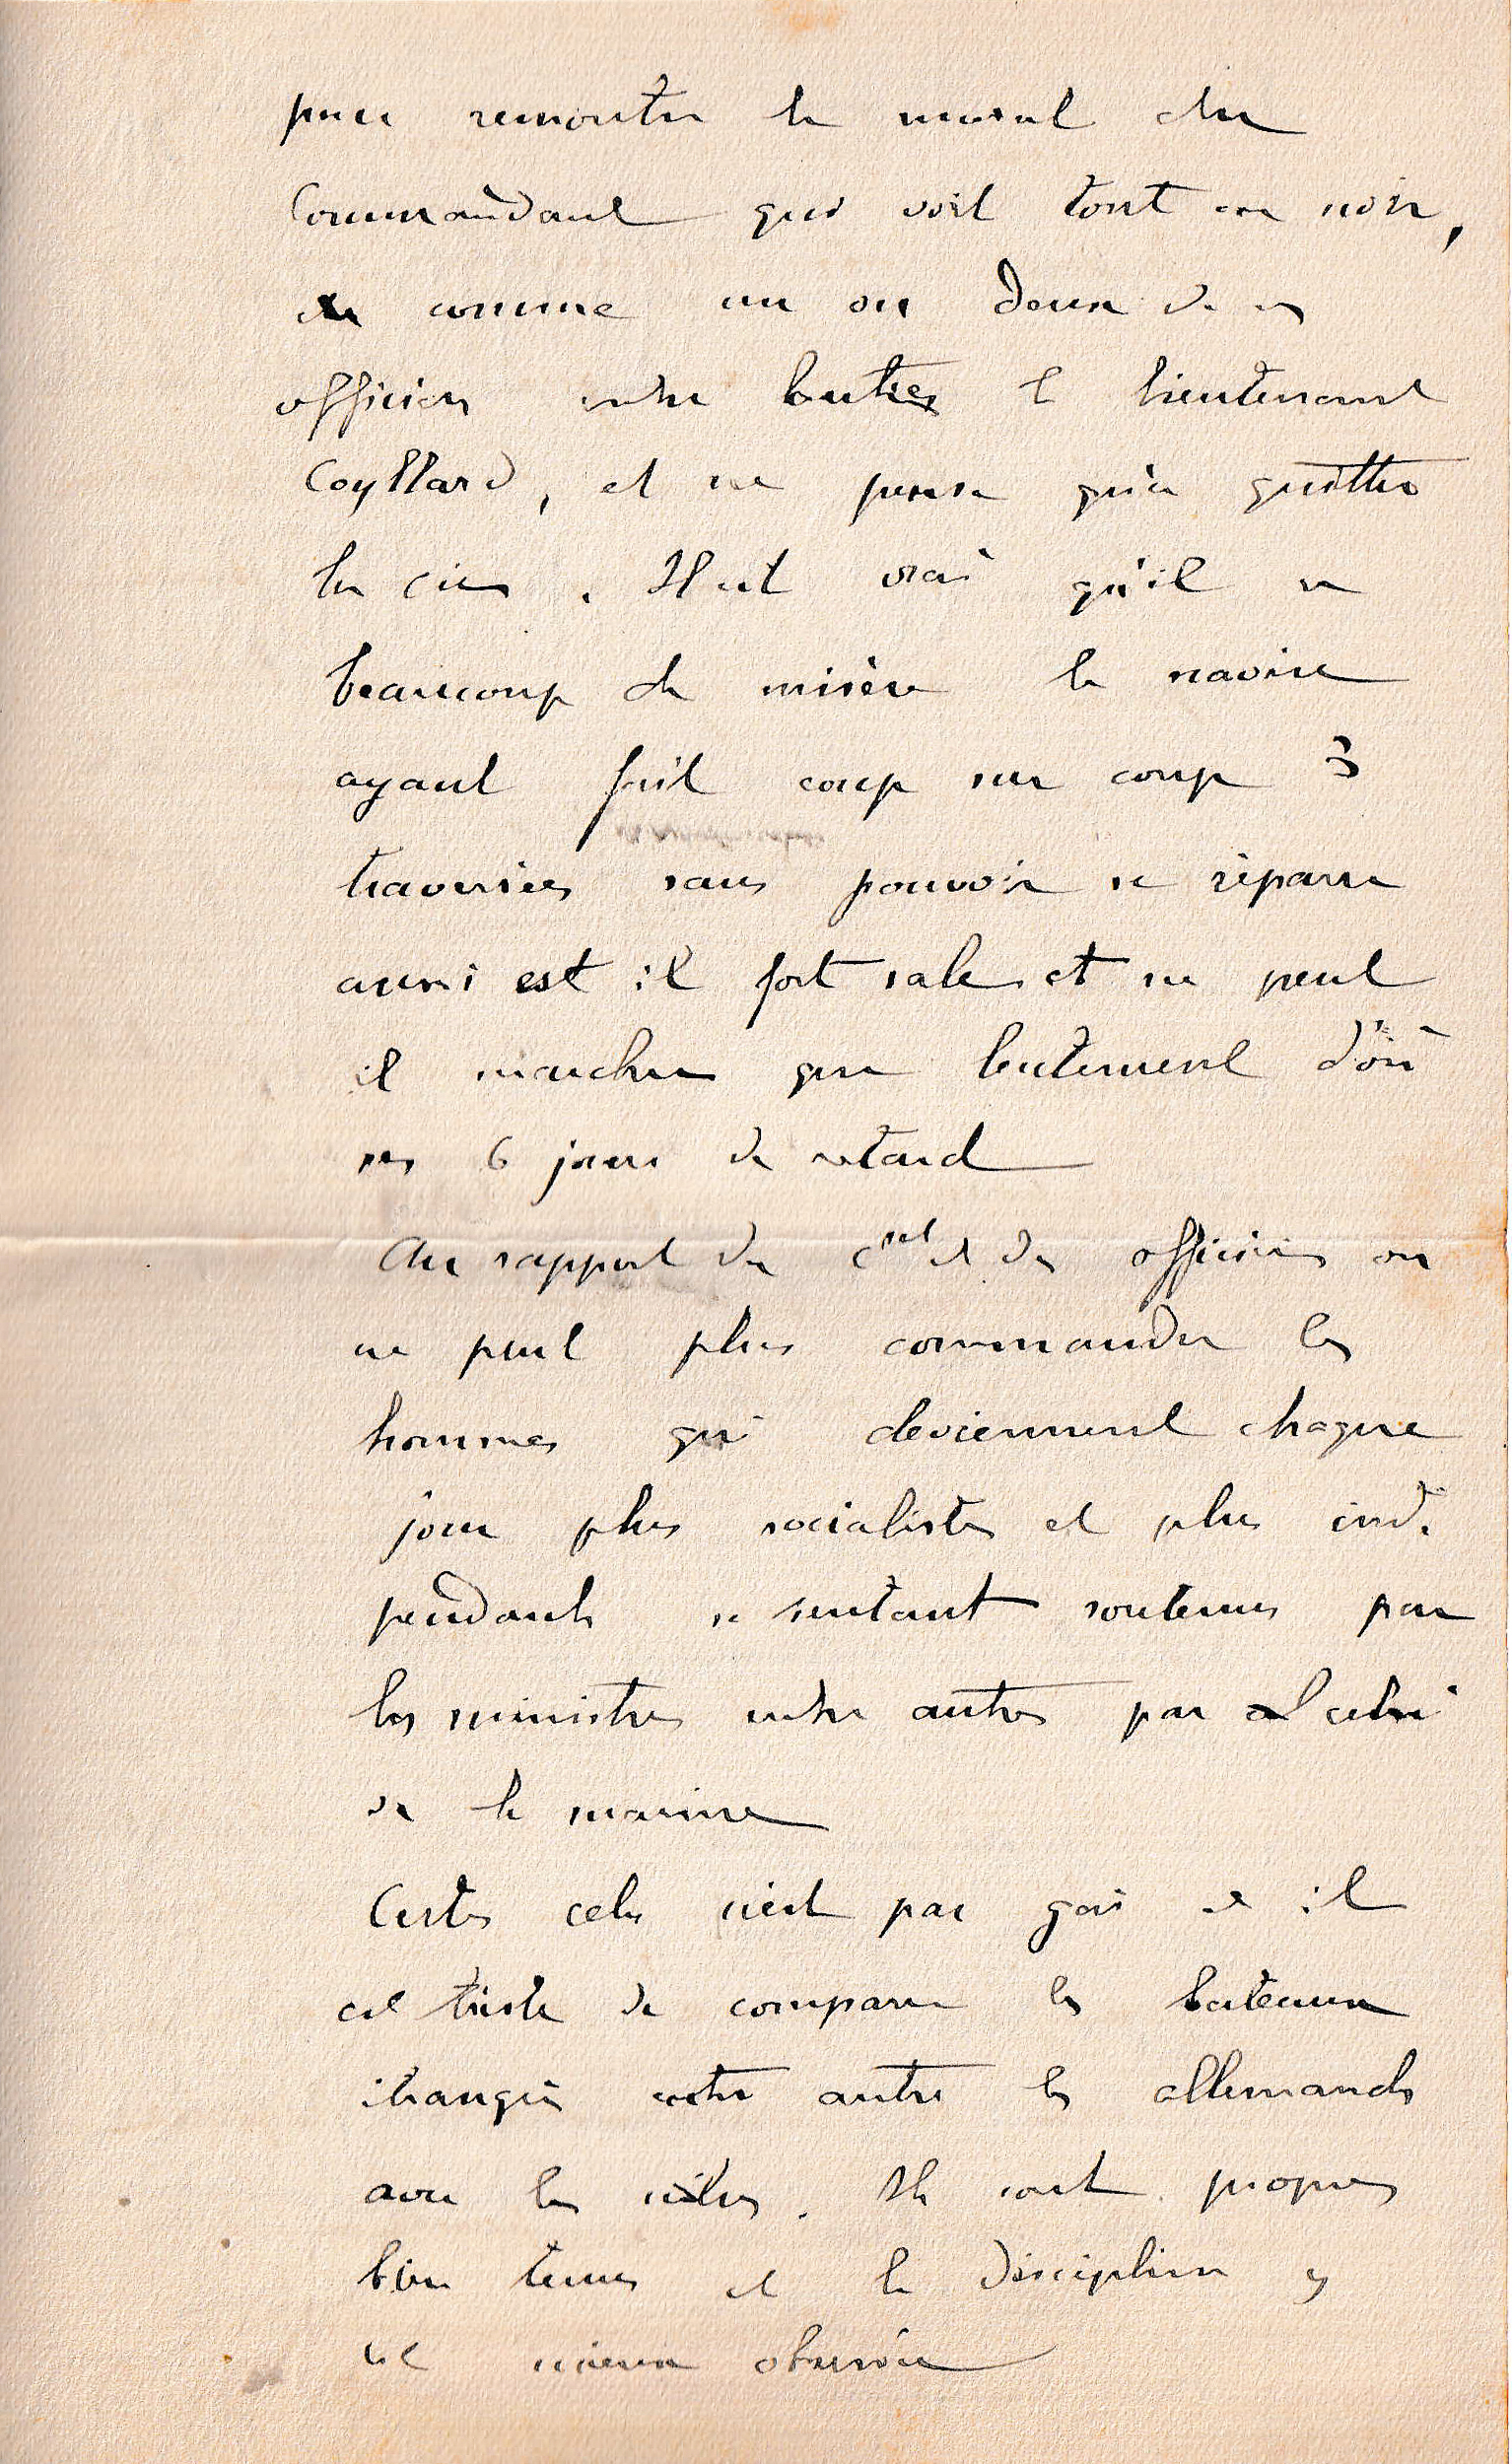 pour remonter le moral du
Commandant qui voit tout en noir,
comme un ou deux de ses
officiers entre autres le lieutenant
Coyllard, et ne pense qu'à quitter
la Cie. Il est vrai qu'il a
beaucoup de misère le navire
ayant fait coup sur coup 3
traversées sans pouvoir se réparer
aussi est il fort sale et ne peut
il marcher que lentement d'où
ses 6 jours de retard
Au rapport du et des officiers on
ne peut plus commander les
hommes qui deviennent chaque
jour plus socialistes et plus indé
pendants se sentant soutenus par
les ministres entre autres par celui
de la marine
Certes cela n'est pas gai et il
est triste de comparer les bateaux
étrangers entre autre les allemands
avec les nôtres. Ils sont propres
bien tenus et la discipline y
est mieux observée